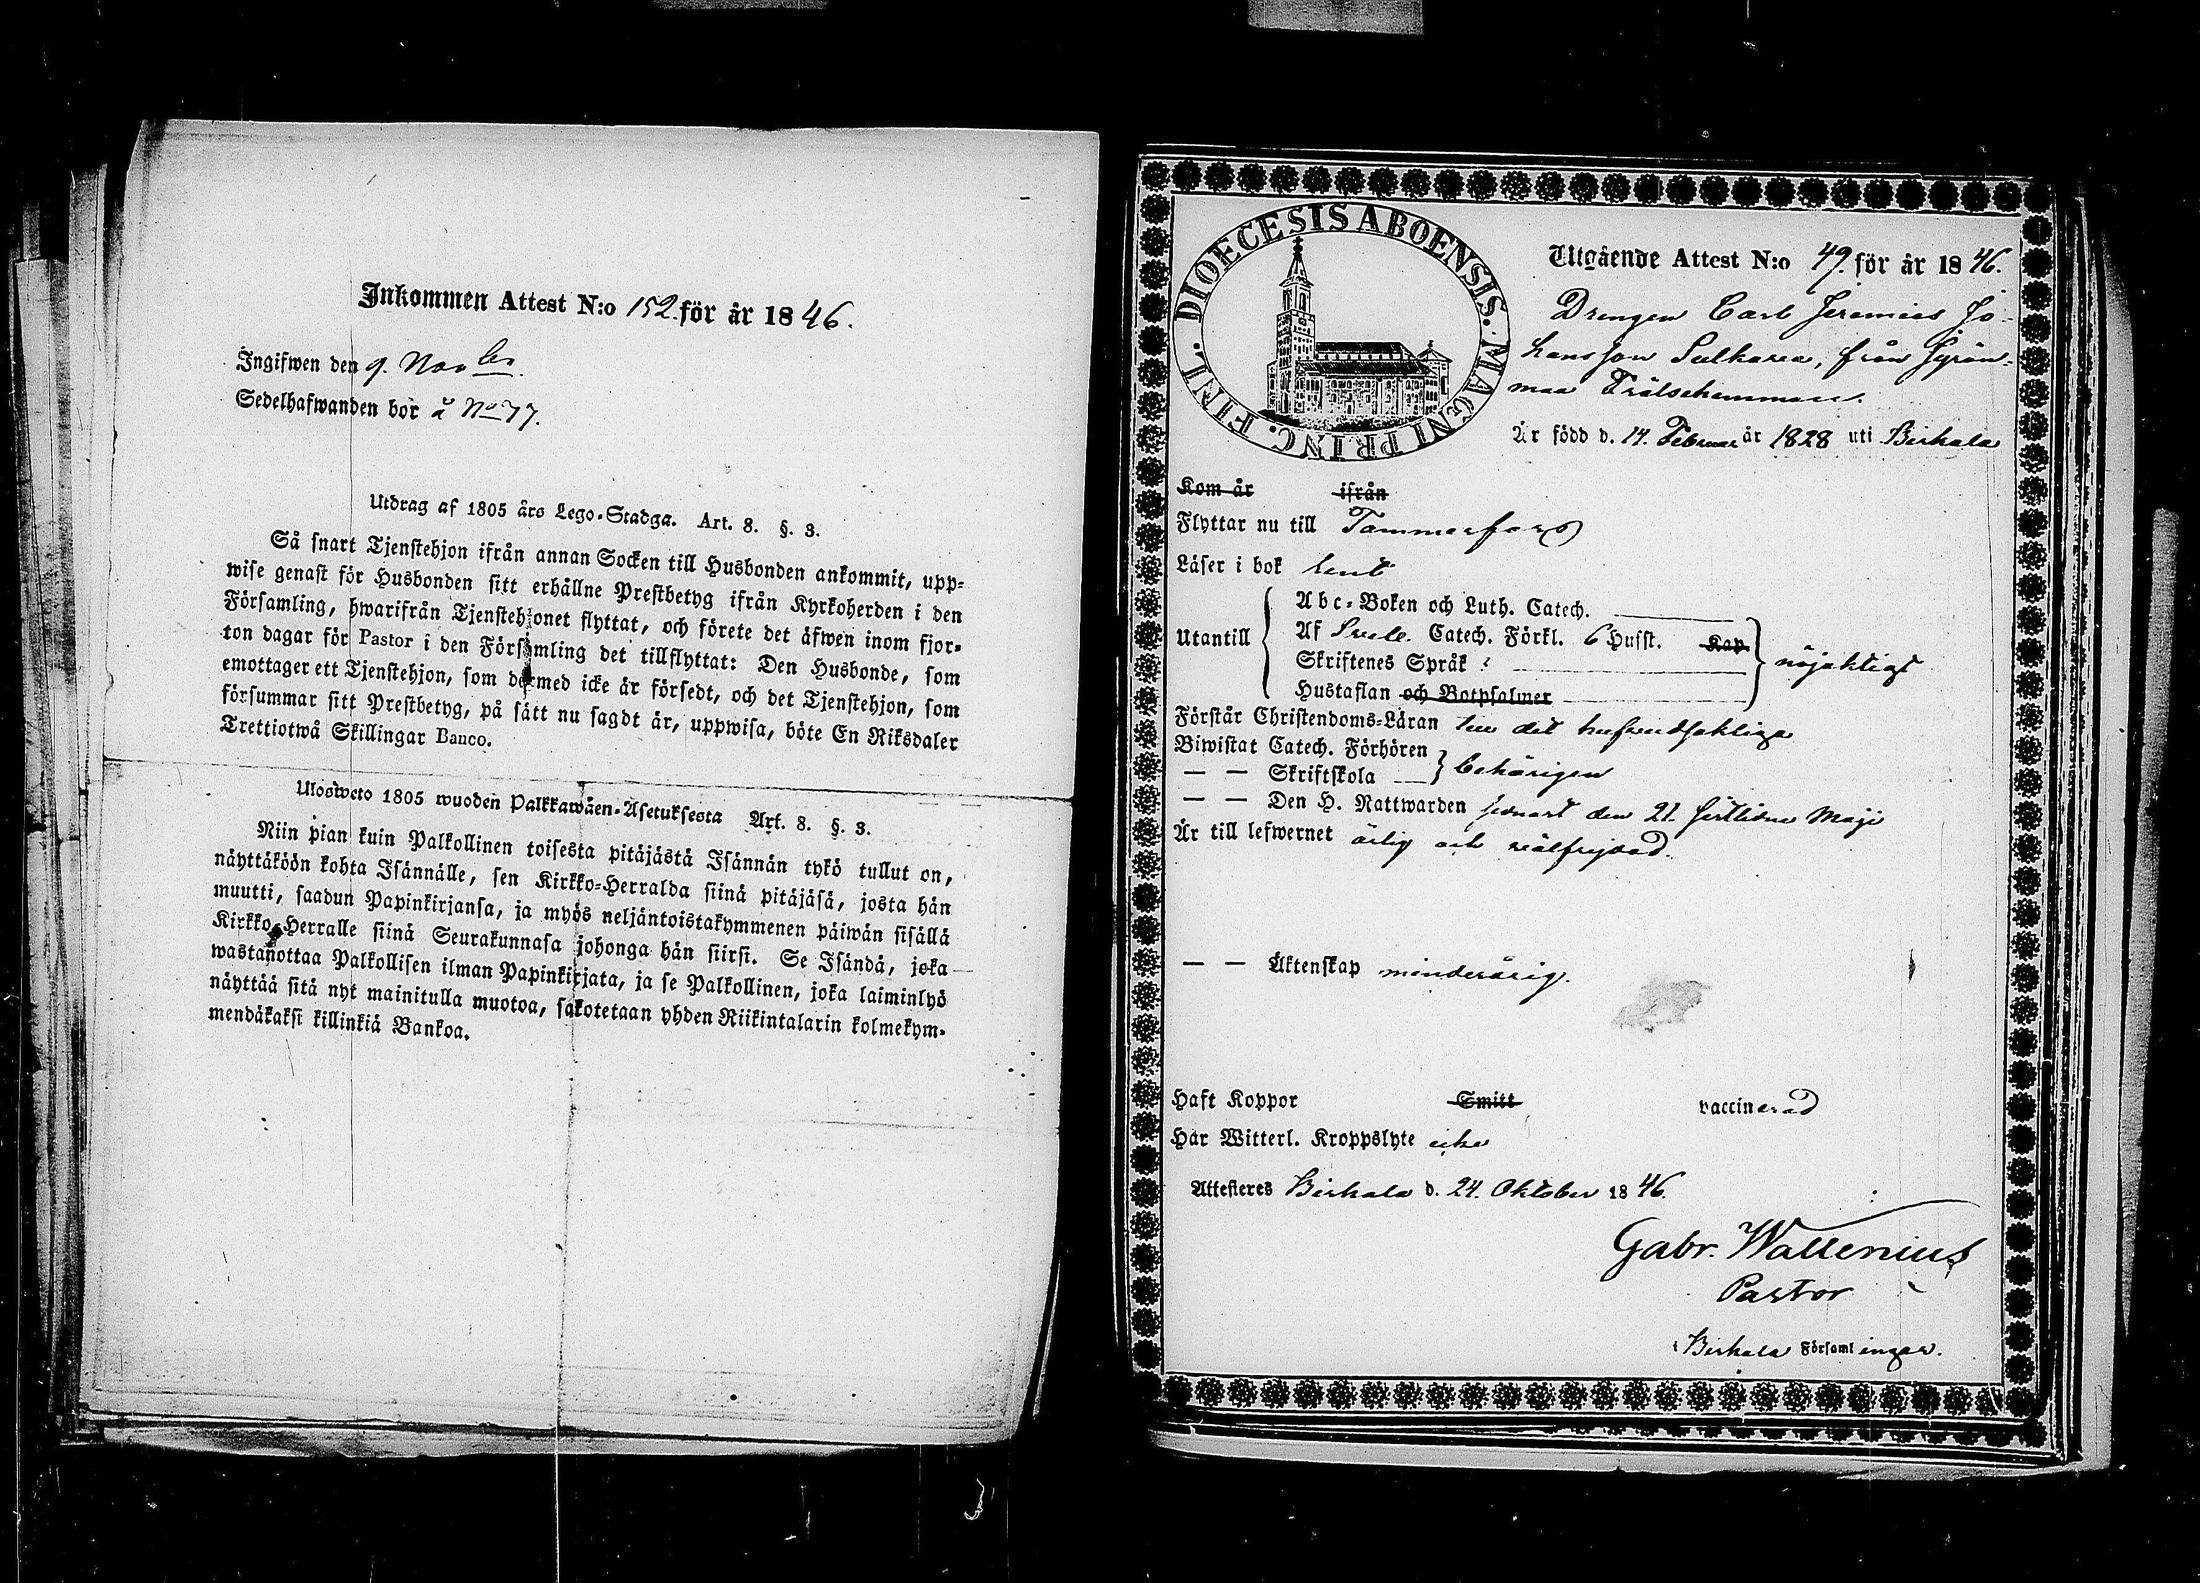 Inkommen Attest N:o 152. för år 1846.
Ingifwen den 9. Novbr
Sedelhafwanden bor å No 77.
Utdrag af 1805 års Lego-Stadga. Art. 8. §. 3.
Så snart Tjenstehjon ifrån annan Socken till Husbonden ankommit, upp-
wise genast för Husbonden sitt erhållne Prestbetyg ifrån Kyrkoherden i den
Församling, hwarifrån Tjenstehjonet flyttat, och förete det äfwen inom fjor-
ton dagar för Pastor i den Församling det tillflyttat: Den Husbonde, som
emottager ett Tjenstehjon, som dermed icke är försedt, och det Tjenstehjon, som
försummar sitt Prestbetyg, på sätt nu sagdt är, uppwisa, böte En Riksdaler
Trettiotwå Skillingar Banco.
Ulosweto 1805 wuoden Palkkawäen-Asetuksesta Art. 8. §. 3.
Niin pian kuin Palkollinen toisesta pitäjästä Isännän tykö tullut on,
näyttäköön kohta Isännälle, sen Kirkko-Herralda siinä pitäjäsä, josta hän
muutti, saadun Papinkirjansa, ja myös neljäntoistakymmenen päiwän sisällä
Kirkko-Herralle siinä Seurakunnasa johonga hän siirsi. Se Isändä, joka
wastanottaa Palkollisen ilman Papinkirjata, ja se Palkollinen, joka laiminlyö
näyttää sitä nyt mainitulla muotoa, sakotetaan yhden Riikintalarin kolmekym-
mendäkaksi killinkiä Bankoa.
DIOECESIS ABOENSIS. MAGNI PRINC. FINL.
Utgående Attest N:o 49. för år 1846.
Drengen Carl Jeremias Jo-
hansson Sulkava, från Pyrön-
maa Frälsehemman.
Är född d. 14. Februar år 1828 uti Birkala
Kom år ifrån
Flyttar nu till Tammerfors
Läser i bok lent
Abc-Boken och Luth. Catech.
Utantill Af Svele. Catech. Förkl. 6 Husst. Kap.
Skriftenes Språk nöjaktigt
Hustaflan och Botpsalmer
Förstår Christendoms-Läran till det hufvudsakliga
Biwistat Catech. Förhören
— — Skriftskola behörigen
— — Den H. Nattwarden senast den 21. sistlidne Maji
Är till lefwernet ärlig och välfrejdad.
— — Äktenskap minderårig.
Haft Koppor Smitt vaccinerad
Har Witterl. Kroppslyte icke
Attesteres Birkala d. 24. Oktober 1846.
Gabr. Wallenius
Pastor
Birkala Församlingar.